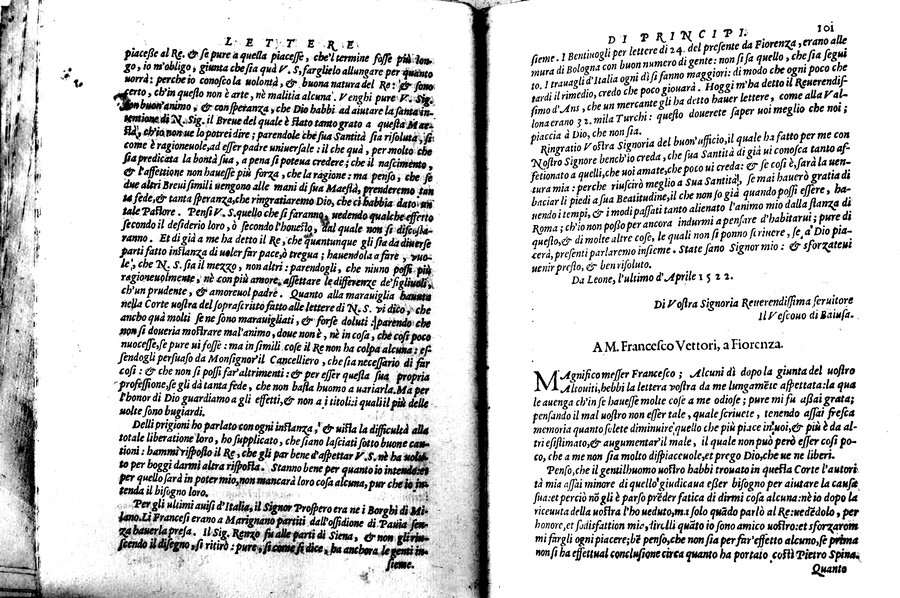 LETTERE
piacesse al Re. & se pure a quella piacesse, che'l termine fosse più lon-
go, io m'obligo, giunta che sia quà V. S, farglielo allungare per quanto
uorrà: perche io conosco la uolontà, & buona natura del Re: & sono
certo, ch'in questo non è arte, nè malitia alcuna. Venghi pure V. Sig.
con buon'animo, & con speranza, che Dio habbi ad aiutare la santa in-
tentione di N. Sig. il Breue del quale è stato tanto grato a questa Mae-
stà, ch'io non ue lo potrei dire; parendole che sua Santità sia risoluta, si
come è ragioneuole, ad esser padre uniuersale: il che quà, per molto che
sia predicata la bontà sua, a pena si poteua credere; che il nascimento,
& l'affettione non hauesse più forza, che la ragione: ma penso, che se
due altri Breui simili uengono alle mani di sua Maestà, prenderemo tan
ta fede, & tanta speranza, che ringratiaremo Dio, che ci habbia dato un
tale Pastore. Pensi V. S. quello che si faranno, uedendo qualche effetto
secondo il desiderio loro, ò secondo l'honesto, dal quale non si discosta-
ranno. Et di già a me ha detto il Re, che quantunque gli sia da diuerse
parti fatto instanza di uoler far pace, ò tregua; hauendola a fare, vuo-
le, che N. S. sia il mezzo, non altri: parendogli, che niuno possi più
ragioneuolmente, nè con più amore, assettare le differenze de' figliuoli,
ch'un prudente, & amoreuol padre. Quanto alla marauiglia hauuta
nella Corte uostra del soprascritto fatto alle lettere di N. S. vi dico, che
ancho quà molti se ne sono marauigliati, & forse doluti: parendo che
non si doueria mostrare mal'animo, doue non è, nè in cosa, che così poco
nuocesse, se pure ui fosse: ma in simili cose il Re non ha colpa alcuna: es-
sendogli persuaso da Monsignor'il Cancelliero, che sia necessario di far
così: & che non si possi far'altrimenti: & per esser questa sua propria
professione, se gli dà tanta fede, che non basta huomo a uariarla. Ma per
l'honor di Dio guardiamo a gli effetti, & non a i titoli: i quali il più delle
uolte sono bugiardi.
Delli prigioni ho parlato con ogni instanza, & uista la difficultà alla
totale liberatione loro, ho supplicato, che siano lasciati sotto buone cau-
tioni: hammi risposto il Re, che gli par bene d'aspettar V. S. nè ha uolu-
to per hoggi darmi altra risposta. Stanno bene per quanto io intendo: et
per quello sarà in poter mio, non mancarà loro cosa alcuna, pur che io in-
tenda il bisogno loro.
Per gli ultimi auisi d'Italia, il Signor Prospero era ne i Borghi di Mi-
lano. Li Francesi erano a Marignano partiti dall'ossidione di Pauia sen-
za hauerla presa. Il Sig. Renzo fu alle parti di Siena, & non gli riu-
scendo il disegno, si ritirò: pure, si come si dice, ha anchora le genti in-
sieme.
DI PRINCIPI. 101
sieme. I Bentiuogli per lettere di 24. del presente da Fiorenza, erano alle
mura di Bologna con buon numero di gente: non si sa quello, che sia segui
to. I trauagli d'Italia ogni dì si fanno maggiori: di modo che ogni poco che
tardi il rimedio, credo che poco giouarà. Hoggi m'ha detto il Reuerendis-
simo d'Ans, che un mercante gli ha detto hauer lettere, come alla Val-
lona erano 32. mila Turchi: questo douerete saper uoi meglio che noi;
piaccia à Dio, che non sia.
Ringratio Vostra Signoria del buon'ufficio, il quale ha fatto per me con
Nostro Signore bench'io creda, che sua Santità di già ui conosca tanto af-
fetionato a quelli, che uoi amate, che poco ui creda: & se così è, sarà la uen-
tura mia: perche riuscirò meglio a Sua Santità, se mai hauerò gratia di
baciar li piedi a sua Beatitudine, il che non so già quando possi essere, ha-
uendo i tempi, & i modi passati tanto alienato l'animo mio dalla stanza di
Roma; ch'io non posso per ancora indurmi a pensare d'habitarui; pure di
questo, & di molte altre cose, le quali non si ponno scriuere, se à Dio pia-
cerà, presenti parlaremo insieme. State sano Signor mio: & sforzateui
uenir presto, & ben risoluto.
Da Leone, l'ultimo d'Aprile 1522.
Di Vostra Signoria Reuerendissima seruitore
Il Vescouo di Baiusa.
A M. Francesco Vettori, a Fiorenza.
MAgnifico messer Francesco; Alcuni dì dopo la giunta del uostro
Altouiti, hebbi la lettera vostra da me lungamẽte aspettata: la qua
le auenga ch'in se hauesse molte cose a me odiose; pure mi fu assai grata;
pensando il mal uostro non esser tale, quale scriuete, tenendo assai fresca
memoria quanto solete diminuire quello che più piace in uoi, & più è da al-
tri esistimato, & augumentar il male, il quale non può però esser così po-
co, che a me non sia molto dispiaceuole, et prego Dio, che ue ne liberi.
Penso, che il gentilhuomo uostro habbi trouato in questa Corte l'autori
tà mia assai minore di quello giudicaua esser bisogno per aiutare la causa
sua: et perciò nõ gli è parso prẽder fatica di dirmi cosa alcuna: nè io dopo la
riceuuta della uostra l'ho ueduto, ma solo quãdo parlò al Re: uedẽdolo, per
honore, et sodisfattion mie, dirli quãto io sono amico uostro: et sforzarom
mi fargli ogni piacere; bẽ penso, che non sia per far'effetto alcuno, se prima
non si ha effettual conclusione circa quanto ha portato costì Pietro Spina.
Quanto